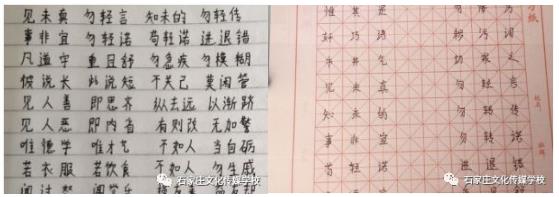 见未真 勿轻言 知未的 勿轻传
事非宜 勿轻诺 苟轻诺 进退错
重且舒 勿急疾 勿模糊
彼说长 此说短 不关己 莫闲管
见人善 即思齐 纵去远 以渐跻
见人恶 即内省 有则改 无加警
唯德学 唯才艺 不如人 当自砺
若衣服 若饮食 不如人 勿生戚
闻过怒 闻誉乐
石家庄文化传媒学校
习纸
惟其是
奸巧语 秽污词
市井气 切戒之
见未真 勿轻言
知未的 勿轻传
事非宜 勿轻诺
苟轻诺 进退错
石家庄文化传媒学校